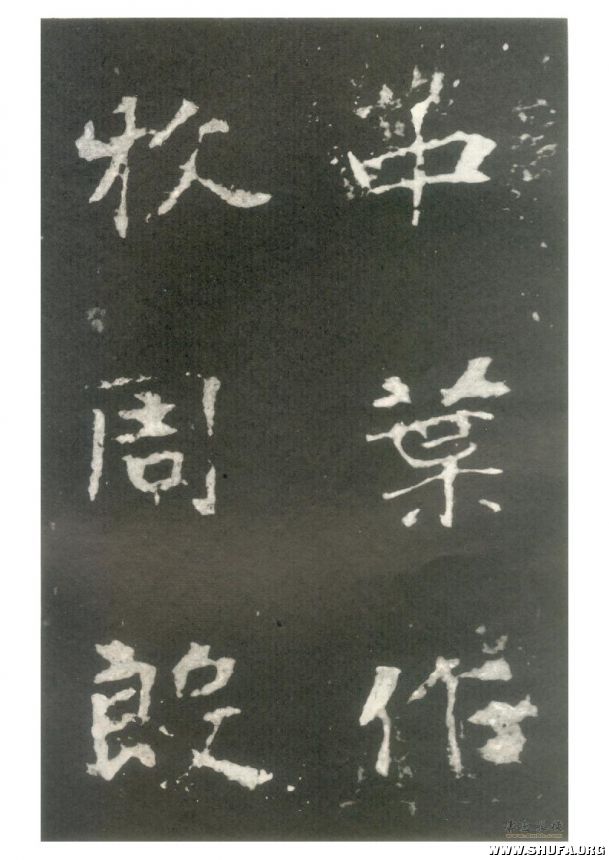 中葉作
牧周殷
WWW.SHUFA.ORG